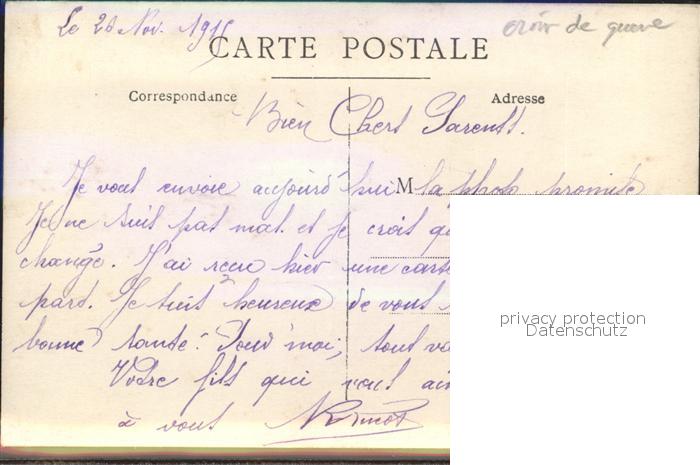 Le 26 Nov. 1915
croix de guerre
CARTE POSTALE
Correspondance
Adresse
Bien Chers Parents.
Je vous envoie aujourd'hui la photo promise
M
Je ne suis pas mal et je crois
changé. J'ai reçu hier une carte
part. Je suis heureux de vous
bonne santé. Pour moi, tout va
Votre fils qui vous
à vous
privacy protection
Datenschutz